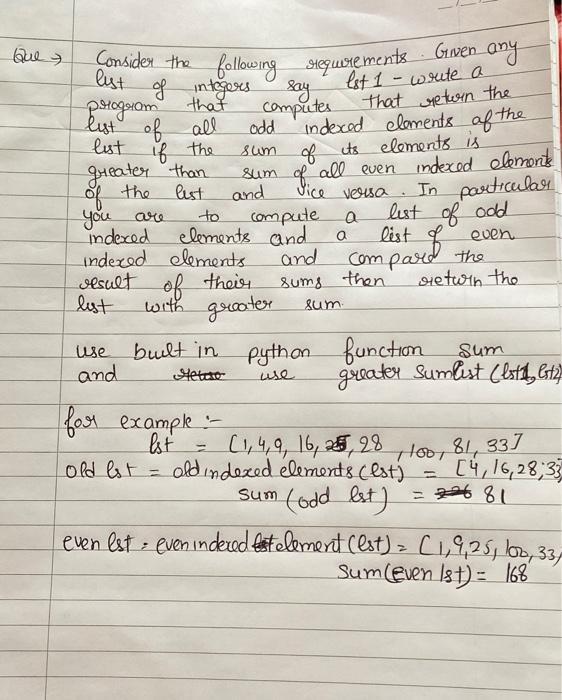 Que → Consider the following requirements. Given any
list of integers say lst 1 - write a
program that computes that return the
list of all odd indexed elements of the
list if the sum of its elements is
greater than sum of all even indexed elements
of the list and vice versa. In particular
you are to compute a list of odd
indexed elements and a list of even
indexed elements and compard the
result of their sums then return the
list with greater sum.
use built in python function sum
and use greater Sumlist (lst1, lst2)
for example :-
lst = [1,4,9, 16, 25, 28, 100, 81, 33]
Odd lst = odd indexed elements (lst) = [4, 16, 28, 33
sum (odd lst) = 81
even lst = even indexed element (lst) = [1, 9, 25, 100, 33,
Sum (even lst) = 168